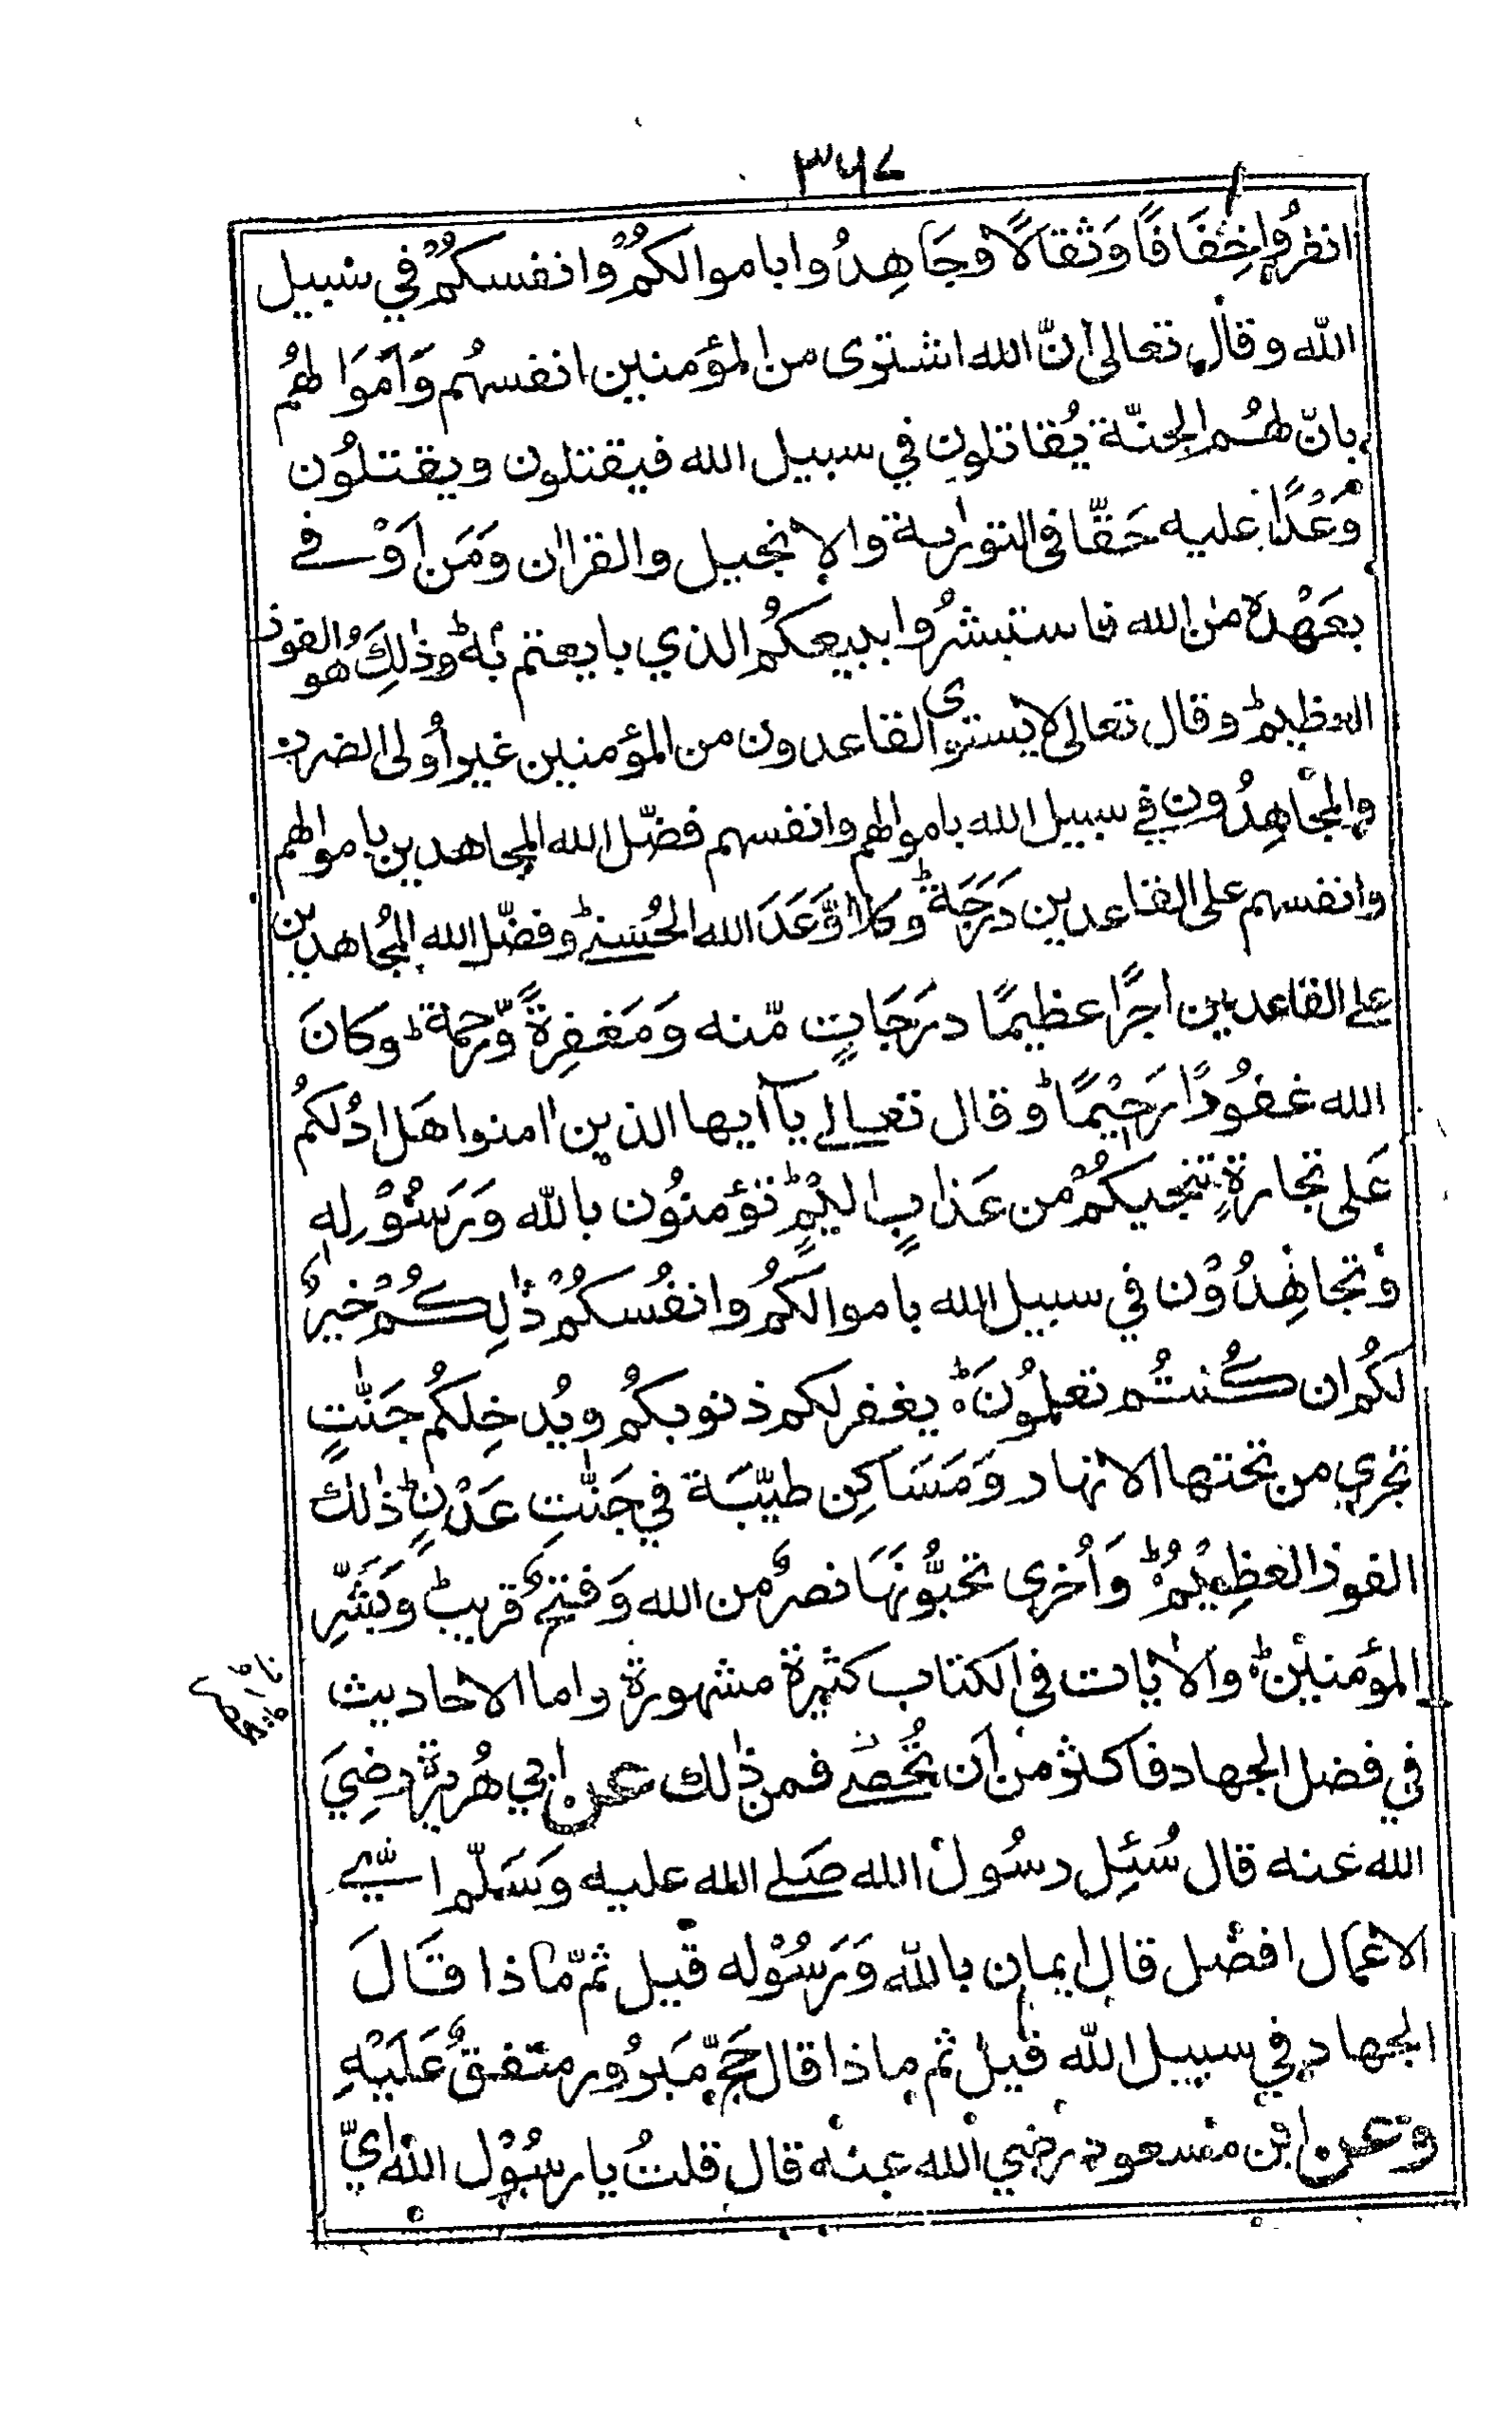 ٣٦٧
انفرُوا خِفَافًا وَثقالًا وجَاهِدُوا باموالكُمْ وانفسكُمْ في سبيل
الله وقال تعالى انّ الله اشترى من المؤمنين انفسهُم وَاَمْوَالهُم
بانّ لهُم الجنّة يُقاتلون في سبيل الله فيقتلون ويقتلُون
وَعْدًا عليه حَقّا في التورىة والانجيل والقراٰن وَمَن اَوْفے
بعَهْدِهٖ من الله فاستبشرُوا ببيعكُم الذي بايعتم بهٖ وذٰلِكَ هُو الفوز
العظيم وقال تعالى لا يستوى القاعدون من المؤمنين غير اُولى الضرر
والمجَاهِدُون في سبيل الله باموالهم وانفسهم فضّل الله المجاهدين باموالهم
وانفسهم على القاعدين دَرَجَةً وكلا وَّعَدَ الله الحُسنےٰ وفضّل الله المجُاهدين
علے القاعدين اجرًا عظيمًا درَجَاتٍ مّنه وَمَغفِرةً وّرحمة وكانَ
الله غفُورًا رَحِيْمًا وقال تعالے يآ ايها الذين اٰمنوا هَل ادُلكمُ
عَلى تجارةٍ تنجيكُمْ من عَذابٍ اليْمٍ تؤمنُون بالله وَرَسُوْلِهٖ
وتجاهِدُوْن في سبيل الله باموالكُم وانفُسكُمْ ذٰلِكُمْ خيرٌ
لكُم ان كُنتُم تعلمُونَ يغفرلكم ذنوبكُم ويُدخِلكُم جَنّٰتٍ
تجري من تحتها الانهار وَمَسَاكِن طيّبَة في جَنّٰتِ عَدْنٍ ذٰلك
الفوز العَظِيْمُ وَاُخرى تحبُّونَهَا نصرٌ من الله وَفتحٌ قريبٌ وبَشِّرِ
المؤمنيْن والاٰيات في الكتاب كثيرة مشهورة واما الاحاديث
في فضل الجهاد فاكثر من اَن تُحصےٰ فمن ذٰلك عن ابي هُريرة رضِيَ
الله عنه قال سُئِل رسُول الله صَلے الله عليه وَسَلّم ايّ
الاعمال افضل قال ايمان بالله وَرَسُوْله قيل ثمّ ماذا قَالَ
الجهاد في سبيل الله قيل ثم ماذا قال حَجّ مَبرُور متفقٌ عَلَيْهِ
وعن ابن مسعود رضي الله عنه قال قلتُ يا رسُوْل الله ايّ